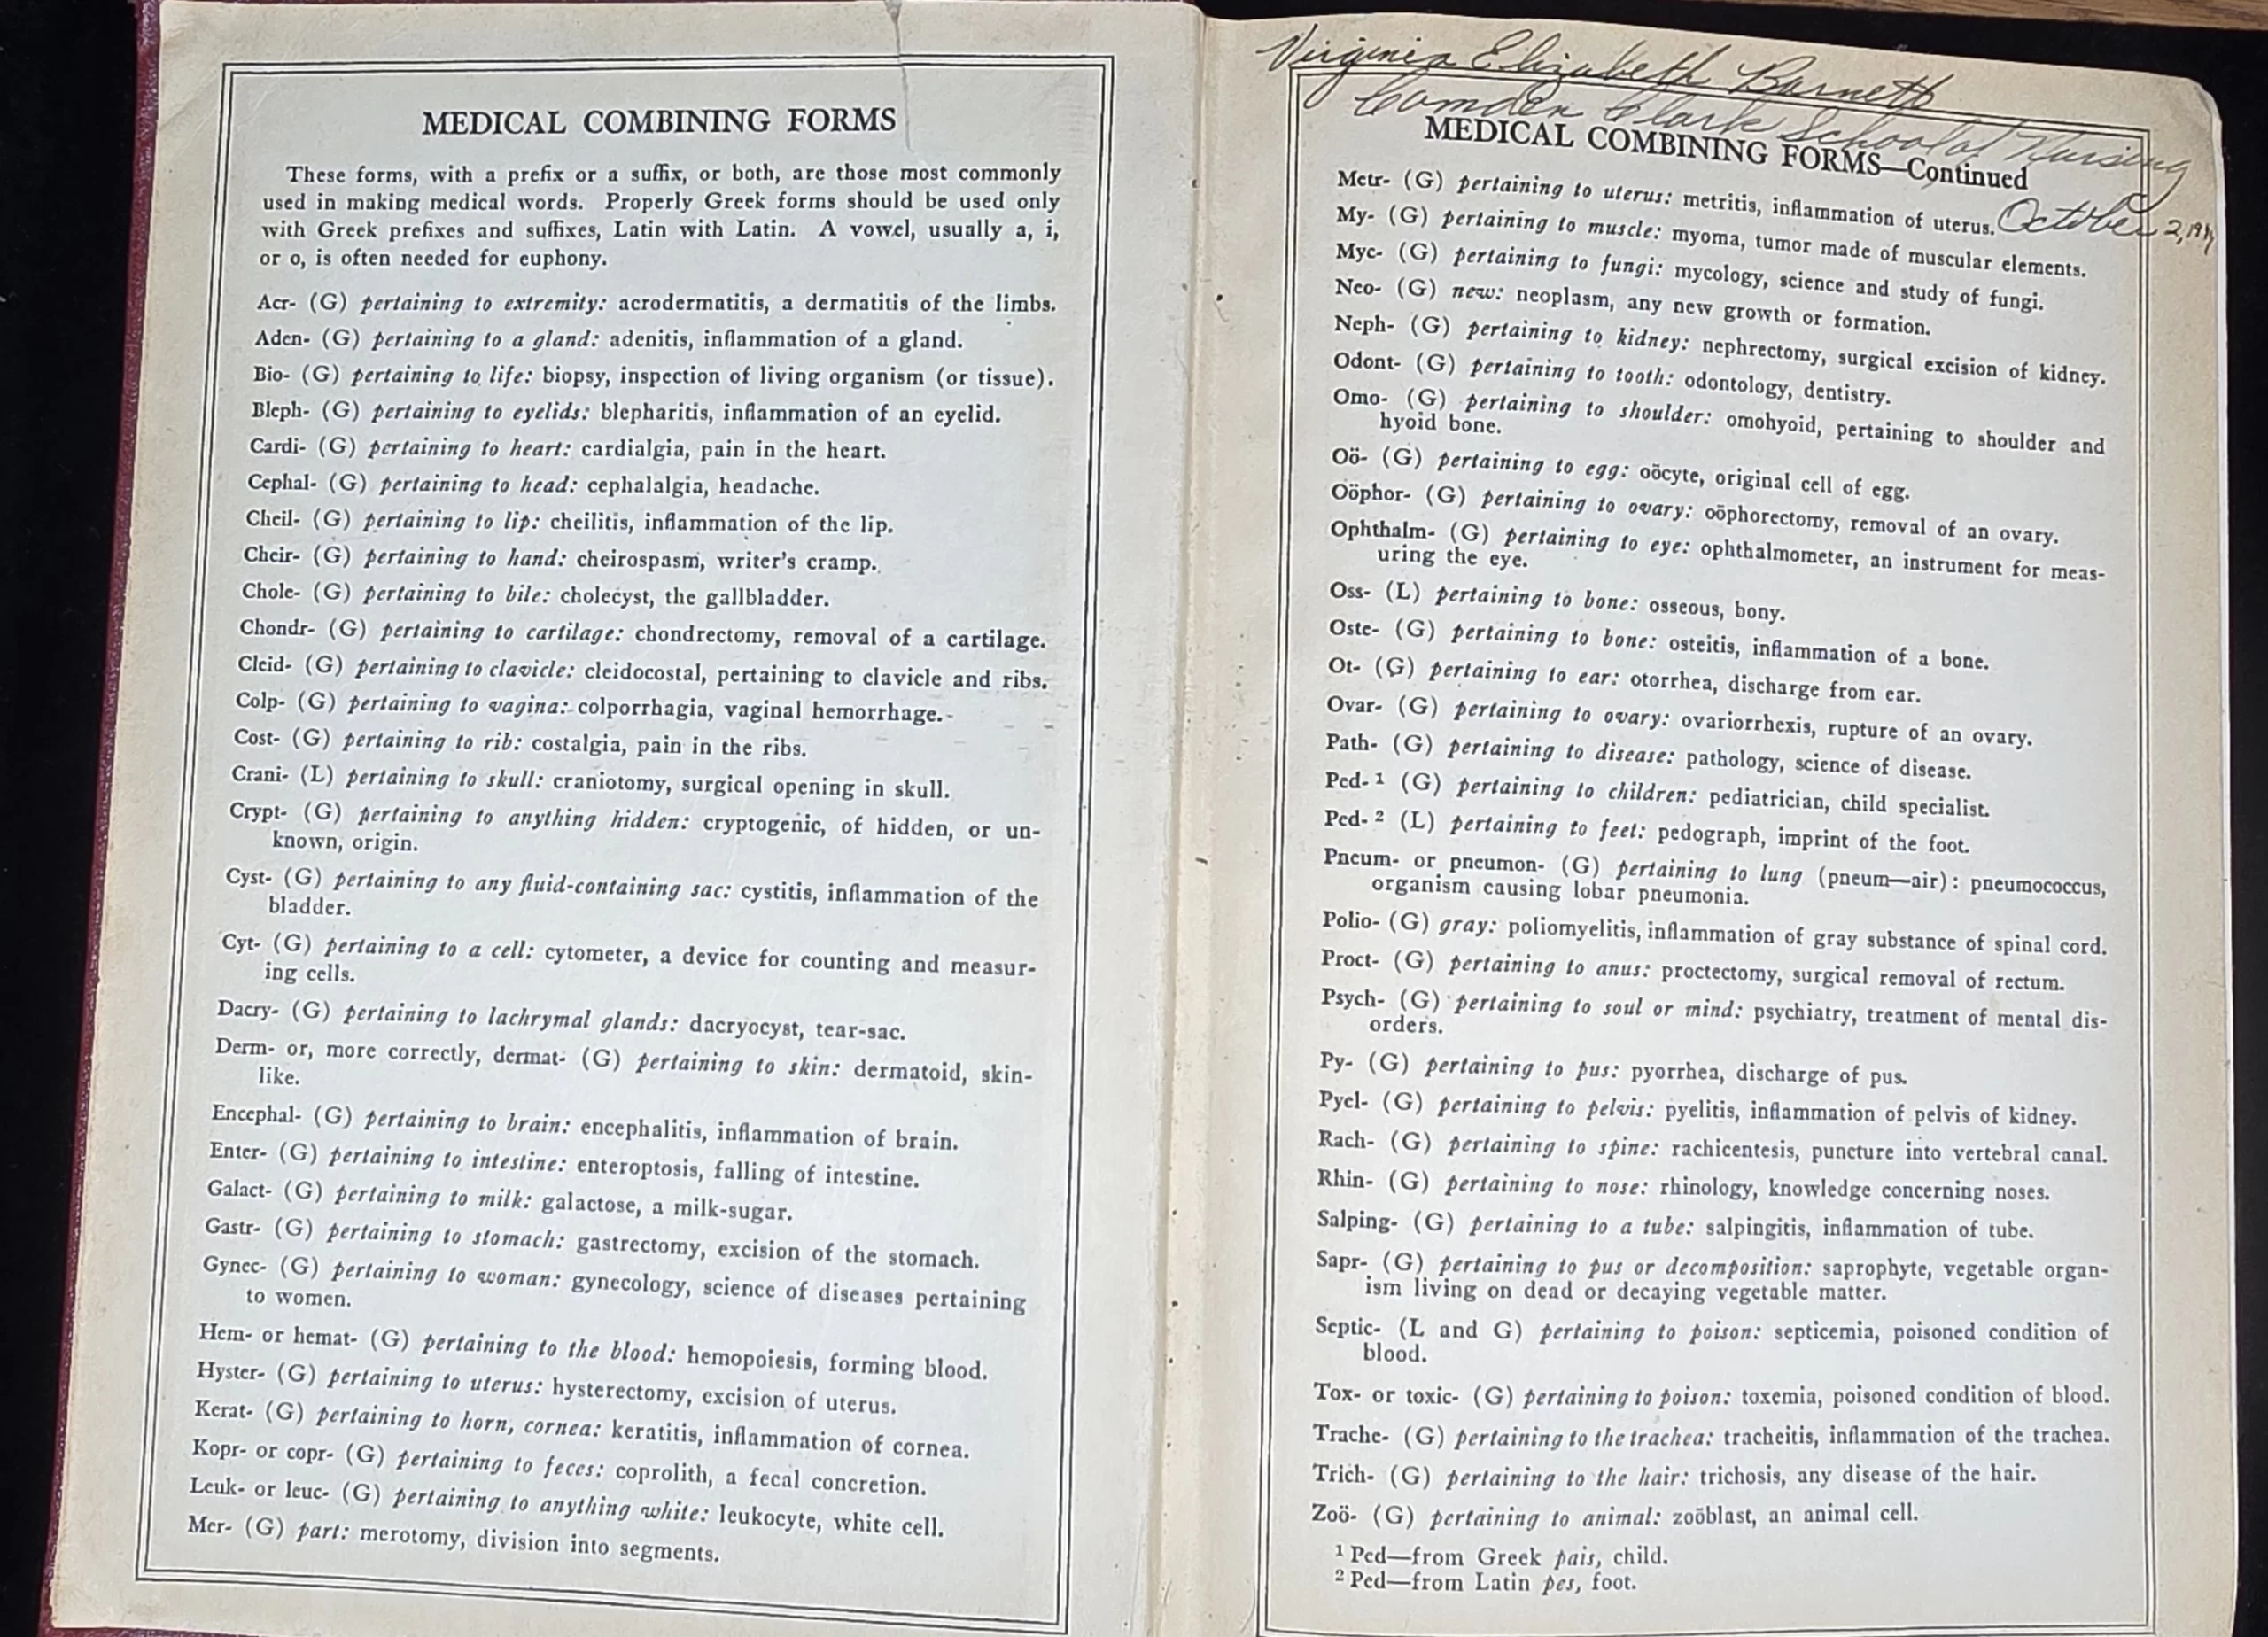 MEDICAL COMBINING FORMS
These forms, with a prefix or a suffix, or both, are those most commonly
used in making medical words. Properly Greek forms should be used only
with Greek prefixes and suffixes, Latin with Latin. A vowel, usually a, i,
or o, is often needed for euphony.
Acr- (G) pertaining to extremity: acrodermatitis, a dermatitis of the limbs.
Aden- (G) pertaining to a gland: adenitis, inflammation of a gland.
Bio- (G) pertaining to life: biopsy, inspection of living organism (or tissue).
Bleph- (G) pertaining to eyelids: blepharitis, inflammation of an eyelid.
Cardi- (G) pertaining to heart: cardialgia, pain in the heart.
Cephal- (G) pertaining to head: cephalalgia, headache.
Cheil- (G) pertaining to lip: cheilitis, inflammation of the lip.
Cheir- (G) pertaining to hand: cheirospasm, writer's cramp.
Chole- (G) pertaining to bile: cholecyst, the gallbladder.
Chondr- (G) pertaining to cartilage: chondrectomy, removal of a cartilage.
Cleid- (G) pertaining to clavicle: cleidocostal, pertaining to clavicle and ribs.
Colp- (G) pertaining to vagina: colporrhagia, vaginal hemorrhage.
Cost- (G) pertaining to rib: costalgia, pain in the ribs.
Crani- (L) pertaining to skull: craniotomy, surgical opening in skull.
Crypt- (G) pertaining to anything hidden: cryptogenic, of hidden, or un-
known, origin.
Cyst- (G) pertaining to any fluid-containing sac: cystitis, inflammation of the
bladder.
Cyt- (G) pertaining to a cell: cytometer, a device for counting and measur-
ing cells.
Dacry- (G) pertaining to lachrymal glands: dacryocyst, tear-sac.
Derm- or, more correctly, dermat- (G) pertaining to skin: dermatoid, skin-
like.
Encephal- (G) pertaining to brain: encephalitis, inflammation of brain.
Enter- (G) pertaining to intestine: enteroptosis, falling of intestine.
Galact- (G) pertaining to milk: galactose, a milk-sugar.
Gastr- (G) pertaining to stomach: gastrectomy, excision of the stomach.
Gynec- (G) pertaining to woman: gynecology, science of diseases pertaining
to women.
Hem- or hemat- (G) pertaining to the blood: hemopoiesis, forming blood.
Hyster- (G) pertaining to uterus: hysterectomy, excision of uterus.
Kerat- (G) pertaining to horn, cornea: keratitis, inflammation of cornea.
Kopr- or copr- (G) pertaining to feces: coprolith, a fecal concretion.
Leuk- or leuc- (G) pertaining to anything white: leukocyte, white cell.
Mer- (G) part: merotomy, division into segments.
Virginia Elizabeth Barnett
Camden Clark School of Nursing
October 2, 19
MEDICAL COMBINING FORMS—Continued
Metr- (G) pertaining to uterus: metritis, inflammation of uterus.
My- (G) pertaining to muscle: myoma, tumor made of muscular elements.
Myc- (G) pertaining to fungi: mycology, science and study of fungi.
Neo- (G) new: neoplasm, any new growth or formation.
Neph- (G) pertaining to kidney: nephrectomy, surgical excision of kidney.
Odont- (G) pertaining to tooth: odontology, dentistry.
Omo- (G) pertaining to shoulder: omohyoid, pertaining to shoulder and
hyoid bone.
Oö- (G) pertaining to egg: oöcyte, original cell of egg.
Oöphor- (G) pertaining to ovary: oöphorectomy, removal of an ovary.
Ophthalm- (G) pertaining to eye: ophthalmometer, an instrument for meas-
uring the eye.
Oss- (L) pertaining to bone: osseous, bony.
Oste- (G) pertaining to bone: osteitis, inflammation of a bone.
Ot- (G) pertaining to ear: otorrhea, discharge from ear.
Ovar- (G) pertaining to ovary: ovariorrhexis, rupture of an ovary.
Path- (G) pertaining to disease: pathology, science of disease.
Ped- ¹ (G) pertaining to children: pediatrician, child specialist.
Ped- ² (L) pertaining to feet: pedograph, imprint of the foot.
Pneum- or pneumon- (G) pertaining to lung (pneum—air): pneumococcus,
organism causing lobar pneumonia.
Polio- (G) gray: poliomyelitis, inflammation of gray substance of spinal cord.
Proct- (G) pertaining to anus: proctectomy, surgical removal of rectum.
Psych- (G) pertaining to soul or mind: psychiatry, treatment of mental dis-
orders.
Py- (G) pertaining to pus: pyorrhea, discharge of pus.
Pyel- (G) pertaining to pelvis: pyelitis, inflammation of pelvis of kidney.
Rach- (G) pertaining to spine: rachicentesis, puncture into vertebral canal.
Rhin- (G) pertaining to nose: rhinology, knowledge concerning noses.
Salping- (G) pertaining to a tube: salpingitis, inflammation of tube.
Sapr- (G) pertaining to pus or decomposition: saprophyte, vegetable organ-
ism living on dead or decaying vegetable matter.
Septic- (L and G) pertaining to poison: septicemia, poisoned condition of
blood.
Tox- or toxic- (G) pertaining to poison: toxemia, poisoned condition of blood.
Trache- (G) pertaining to the trachea: tracheitis, inflammation of the trachea.
Trich- (G) pertaining to the hair: trichosis, any disease of the hair.
Zoö- (G) pertaining to animal: zoöblast, an animal cell.
¹ Ped—from Greek pais, child.
² Ped—from Latin pes, foot.